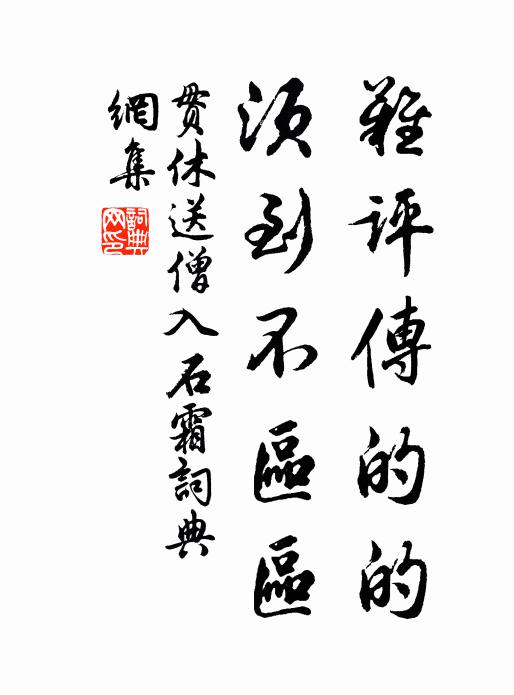 難評傳的的
須到不區區
貫休送僧入石霜詞典
網集
詞典
网印